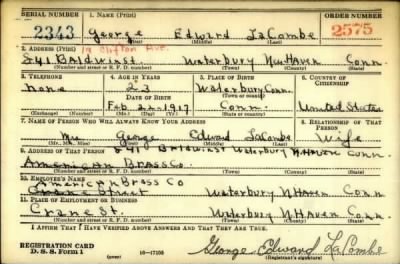 SERIAL NUMBER 1. NAME (Print) ORDER NUMBER
2343 George Edward LaCombe 2575
(First) (Middle) (Last)
2. ADDRESS (Print) 19 Clifton Ave.
841 Baldwin St. Waterbury New Haven Conn.
(Number and street or R. F. D. number) (Town) (County) (State)
3. TELEPHONE 4. AGE IN YEARS 5. PLACE OF BIRTH 6. COUNTRY OF CITIZENSHIP
none 23 Waterbury Conn.
DATE OF BIRTH
Feb 1917 Conn. United States
(Exchange) (Number) (Mo.) (Day) (Yr.) (State or country)
7. NAME OF PERSON WHO WILL ALWAYS KNOW YOUR ADDRESS 8. RELATIONSHIP OF THAT PERSON
Mrs George Edward LaCombe Wife
(Mr., Mrs., Miss) (First) (Middle) (Last)
9. ADDRESS OF THAT PERSON 841 Baldwin St Waterbury N. Haven Conn.
American Brass Co.
(Number and street or R. F. D. number) (Town) (County) (State)
10. EMPLOYER'S NAME
American Brass Co
Crane Street Waterbury N Haven Conn
11. PLACE OF EMPLOYMENT OR BUSINESS
Crane St. Waterbury N. Haven Conn
(Number and street or R. F. D. number) (Town) (County) (State)
I AFFIRM THAT I HAVE VERIFIED ABOVE ANSWERS AND THAT THEY ARE TRUE.
REGISTRATION CARD
D. S. S. Form 1 (over) 16—17105 George Edward LaCombe
(Registrant's signature)